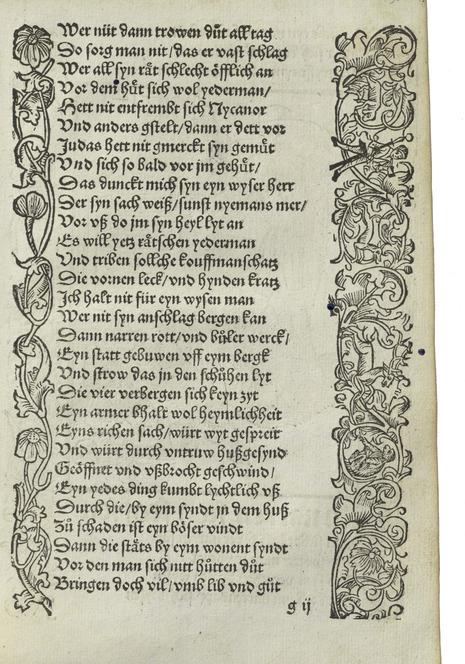 Wer nüt dann trowen důt all tag
Do sorg man nit/das er vast schlag
Wer all syn rät schlecht öfflich an
Vor dem hüt sich wol yederman/
Hett nit entfrembt sich Nycanor
Vnd anders gstelt/dann er dett vor
Judas hett nit gmerckt syn gemüt
Vnd sich so bald vor jm gehüt/
Das dunckt mich syn eyn wyser herr
Der syn sach weiß/sunst nyemans mer/
Vor vß do jm syn heyl lyt an
Es will yetz rätschen yederman
Vnd triben sollche kouffmanschatz
Die vornen leck/vnd hynden kratz
Ich halt nit für eyn wysen man
Wer nit syn anschlag bergen kan
Dann narren rott/vnd bůler werck/
Eyn statt gebuwen vff eym bergk
Vnd strow das jn den schühen lyt
Die vier verbergen sich keyn zyt
Eyn armer bhalt wol heymlichheit
Eyns richen sach/würt wyt gespreit
Vnd würt durch vntruw hußgesynd
Geöffnet vnd vßbrocht geschwind/
Eyn yedes ding kumbt lychtlich vß
Durch die/by eym syndt jn dem huß
Zů schaden ist eyn böser vindt
Dann die stäts by eym wonent syndt
Vor den man sich nitt hütten důt
Bringen doch vil/vmb lib vnd gůt
g ij